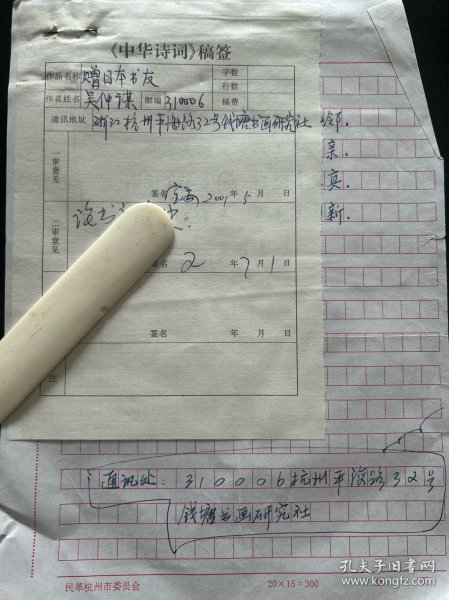 《中华诗词》稿签
作品名称 赠日本书友 字数
行数
作者姓名 吴仲谋 邮编 310006 稿费
通讯地址 浙江杭州平海路32号钱塘书画研究社
邻.
亲.
真.
新.
一审意见
签名 2001年5月 日
二审意见
签名 2 年7月1日
签名 年 月 日
注
通讯处: 310006杭州平海路32号
钱塘书画研究社
民革杭州市委员会 20×15=300
孔夫子旧书网
www.kongfz.com